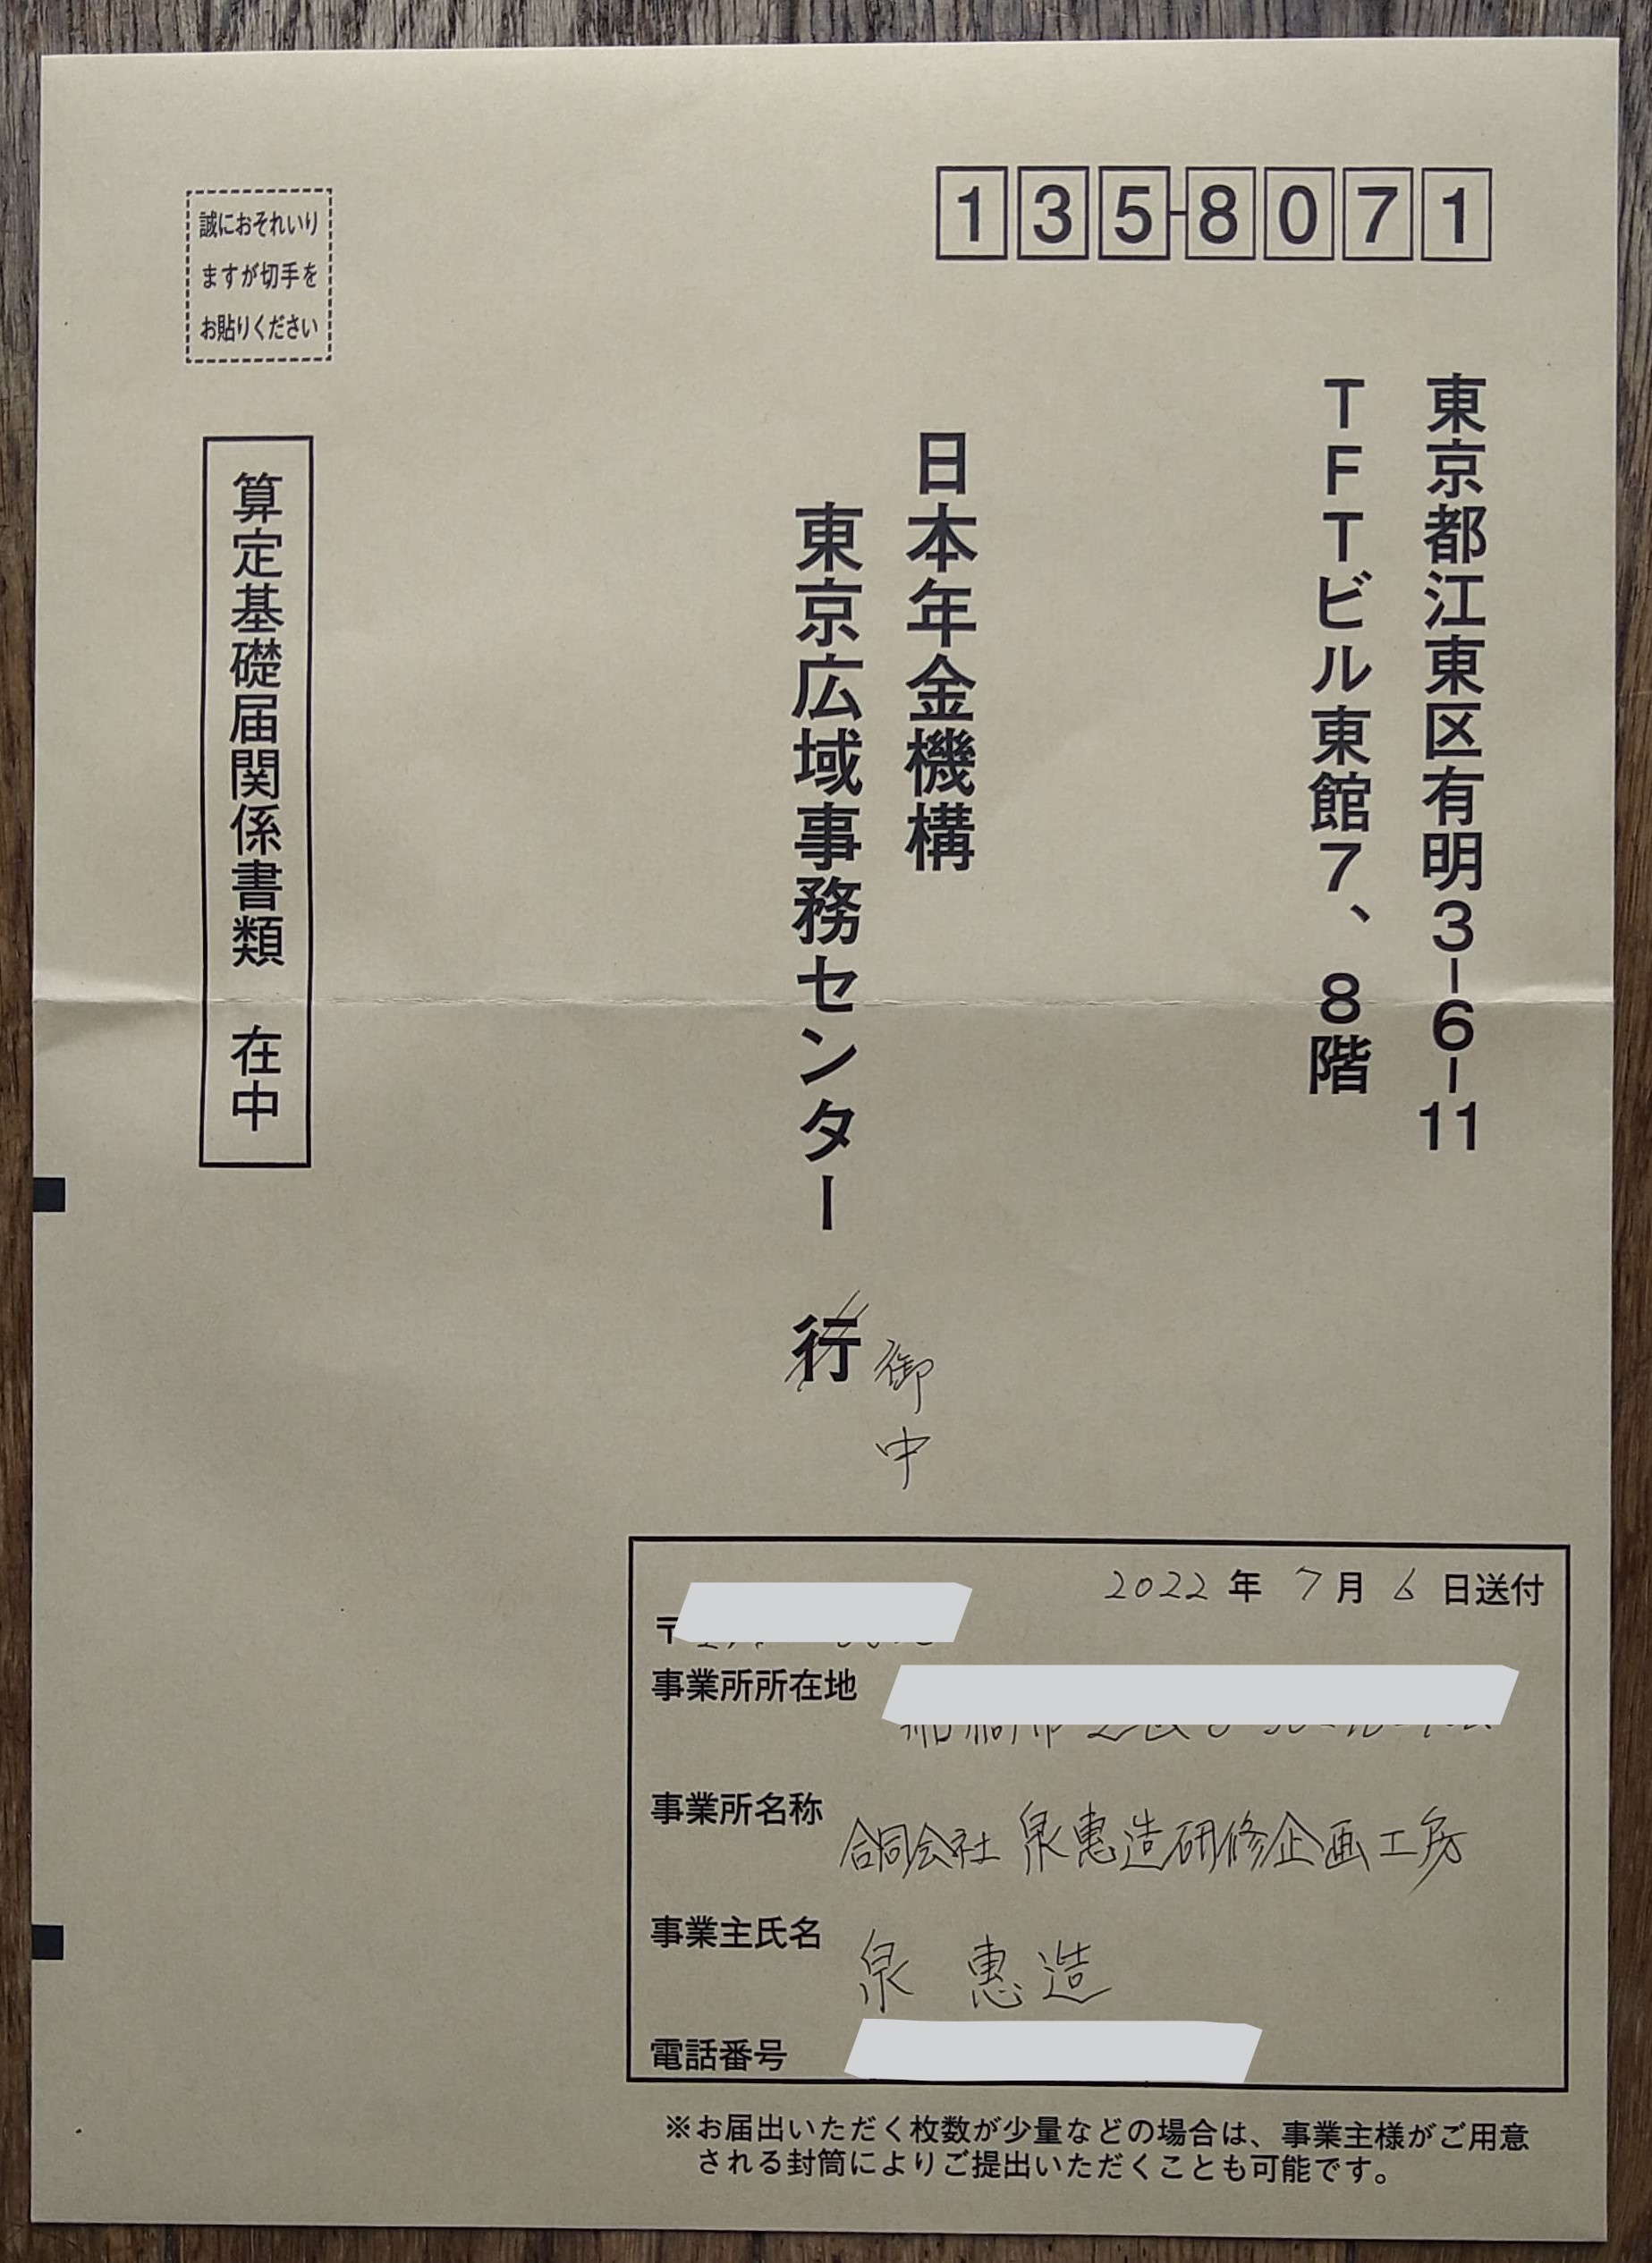 1358071
東京都江東区有明3-6-11
TFTビル東館7、8階
日本年金機構
東京広域事務センター 行
御中
誠におそれいり
ますが切手を
お貼りください
算定基礎届関係書類 在中
2022年7月6日送付
〒
事業所所在地
事業所名称 合同会社 泉惠造研修企画工房
事業主氏名 泉 惠造
電話番号
※お届出いただく枚数が少量などの場合は、事業主様がご用意
される封筒によりご提出いただくことも可能です。